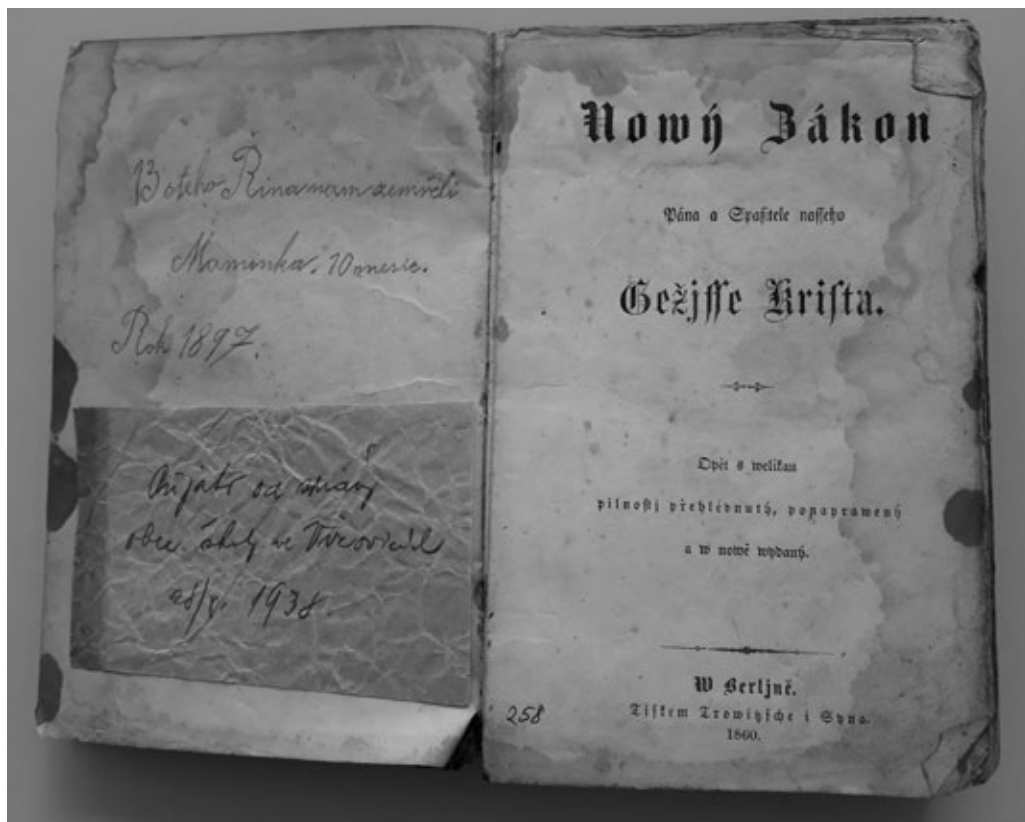 13 oteho Rina nam zemřeli
Maminka. 10 mesic.
Rok 1897.
Přijato od správy
obec. školy ve
1938.
258
Nowý Zákon
Pána a Spasitele nasseho
Gežjsse Krista.
Opět s welikau
pilnostj přehlédnutý, ponaprawený
a w nowě wydaný.
W Berljně.
Tiskem Trowitzsche i Syna.
1860.